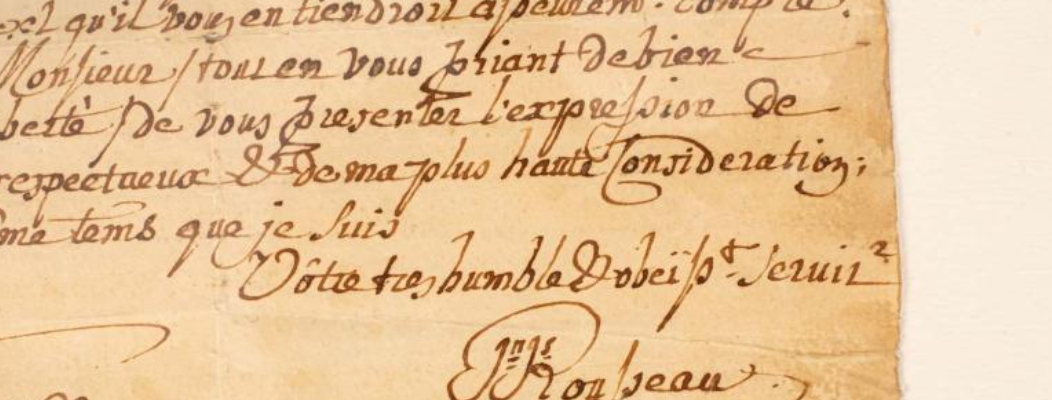 qu'il vous en tiendroit compte.
Monsieur, tout en vous priant de bien
berté, de vous presenter l'expression de
respectueux & de ma plus haute Consideration;
me tems que je suis
Vôtre tres humble & obeïsst. servir
Jn Js Rousseau